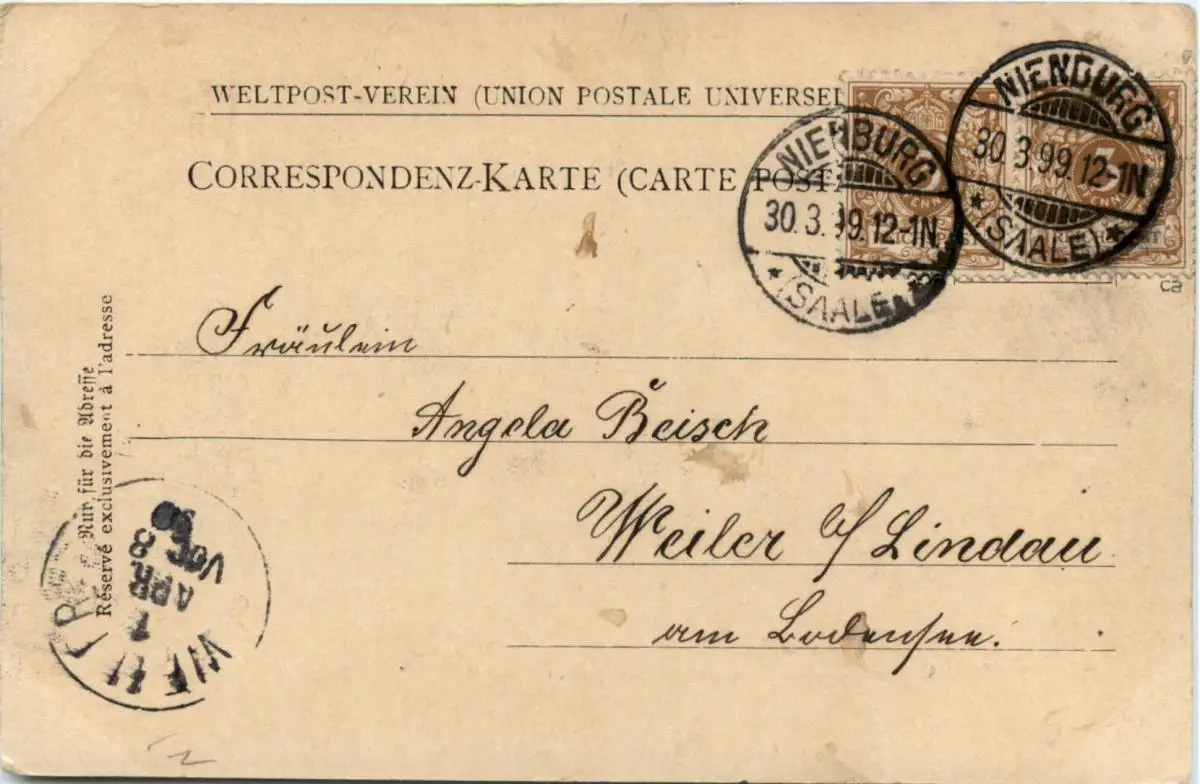 WELTPOST-VEREIN (UNION POSTALE UNIVERSEL
CORRESPONDENZ-KARTE (CARTE POST
NIENBURG
30.3.99.12-1N
* (SAALE) *
NIENBURG
30.3.99.12-1N
* (SAALE) *
Fräulein
Angela Beisch
Weiler b/Lindau
am Bodensee.
Nur für die Adresse
Réservé exclusivement à l'adresse
WEILER
1
APR. 8
VOR.
99